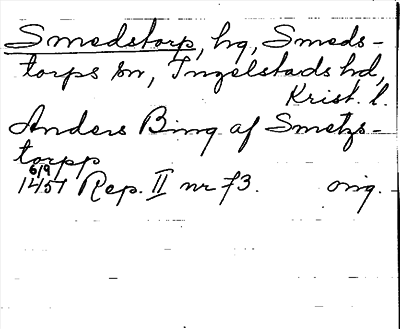 Smedstorp, hg, Smeds-
torps sn, Ingelstads hd,
Krist. l.
Anders Bing af Smetzs-
torpp
6/9
1457 Rep. II nr 73. orig.